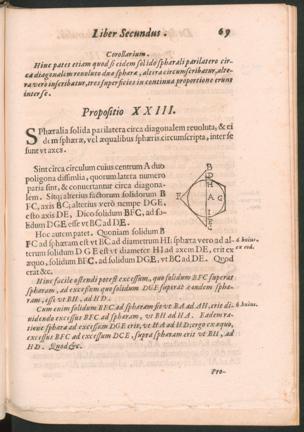 Liber Secundus. 69
Corollarium.
Hinc patet etiam quod si eidem solido sphærali parilatero cir-
ca diagonalem reuoluto duæ sphæræ, altera circumscribatur, alte-
ra vero inscribatur, tres superficies in continua proportione erunt
inter se.
Propositio XXIII.
SPhæralia solida parilatera circa diagonalem reuoluta, & ei
dem sphæræ, vel æqualibus sphæris circumscripta, inter se
sunt vt axes.
Sint circa circulum cuius centrum A duo
poligona dissimilia, quorum latera numero
paria sint, & conuertantur circa diagona-
lem. Sitque alterius factorum solidorum B
FC, axis BC; alterius verò nempe DGE,
esto axis DE, Dico solidum BFC, ad so-
lidum DGE, esse vt BC ad DE.
B
D
H
F
A
G
I
E
C
Hoc autem patet. Quoniam solidum B
FC ad sphæram est vt BC ad diametrum HI: sphæra vero ad al-
terum solidum DGE est vt diameter HI ad axem DE, erit ex
æquo, solidum BFC, ad solidum DGE, vt BC ad DE. Quod
erat &c.
4. huius.
ex ead.
Hinc facile ostendi potest excessum, quo solidum BFC superat
sphæram, ad excessum quo solidum DGE superat eandem sphæ-
ram, esse vt BH, ad HD.
Cum enim solidum BFC ad sphæram sit vt BA ad AH, erit di-
uidendo excessus BFC ad sphæram, vt BH ad HA. Eadem ra-
tione sphæra ad excessum DGE erit, vt HA ad HD; ergo ex æquo,
excessus BFC ad excessum DGE, supra sphæram erit vt BH, ad
HD. Quod &c.
4. huius.
Pro-